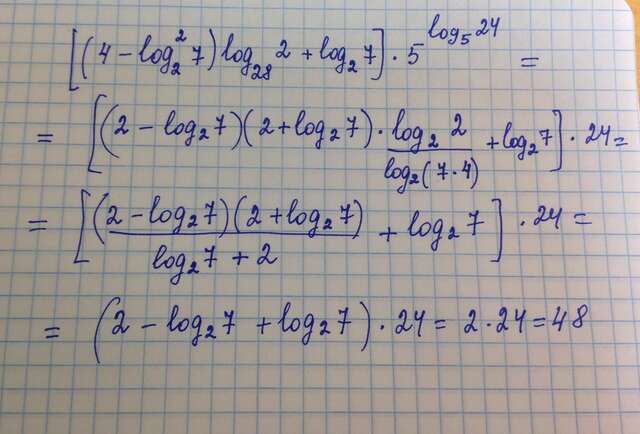 [(4 - log₂² 7) log₂₈ 2 + log₂ 7] · 5^(log₅ 24) =
= [(2 - log₂ 7)(2 + log₂ 7) · (log₂ 2)/(log₂(7·4)) + log₂ 7] · 24 =
= [((2 - log₂ 7)(2 + log₂ 7))/(log₂ 7 + 2) + log₂ 7] · 24 =
= (2 - log₂ 7 + log₂ 7) · 24 = 2 · 24 = 48